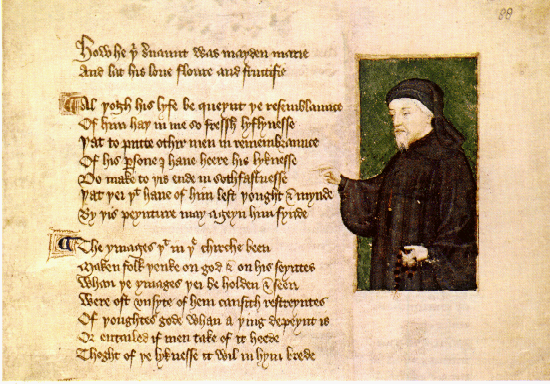 88
How he þͥ seruant was mayden marie
And lat his loue floure and fructifie
Al þogh his lyfe be queynt þe resemblaunce
Of him haþ in me so fressh lyflynesse
Þat to putte othir men in remembraunce
Of his ꝑsone I haue heere his lyknesse
Do make to þis ende in sothfastnesse
Þat þei þͭ haue of him left þought & mynde
By þis peynture may ageyn him fynde
The ymages þͭ in þͤ chirche been
Maken folk þenke on god & on his seyntes
Whan þe ymages þei beholden & seen
Were oft vnsyte of hem causith restreyntes
Of þoughtes gode whan a þing depeynt is
Or entailed if men take of it heede
Thoght of þe lyknesse it wil in hym brede